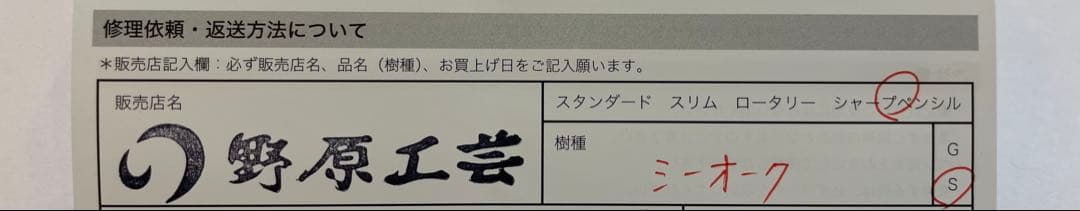 修理依頼・返送方法について
＊販売店記入欄：必ず販売店名、品名（樹種）、お買上げ日をご記入願います。
販売店名
野原工芸
スタンダード　スリム　ロータリー　シャープペンシル
樹種
シーオーク
G
S